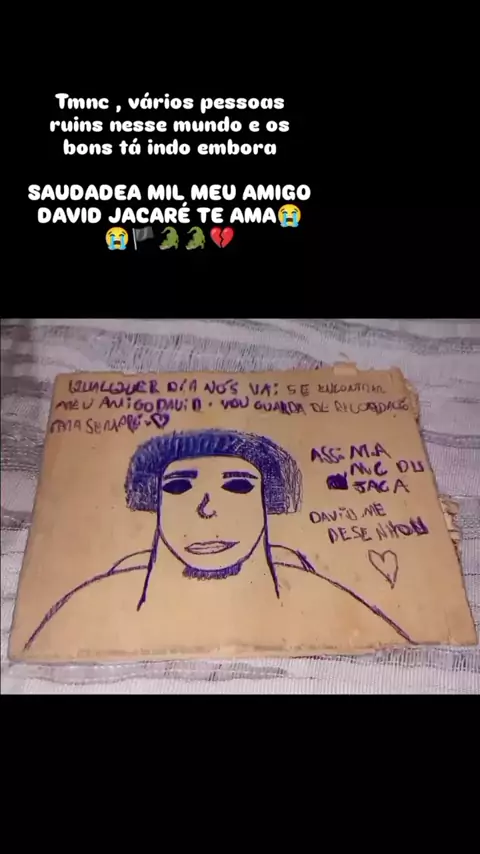 Tmnc , vários pessoas
ruins nesse mundo e os
bons tá indo embora
SAUDADEA MIL MEU AMIGO
DAVID JACARÉ TE AMA😭
😭🏴🐊🐊💔
QUALQUER DIA NOS VAI SE ENCONTRAR
MEU AMIGO DAVID. VOU GUARDA DE RECORDAÇÃO
PARA SEMPRE
ASSIMA
MC DU
JACA
DAVID ME
DESENHOU